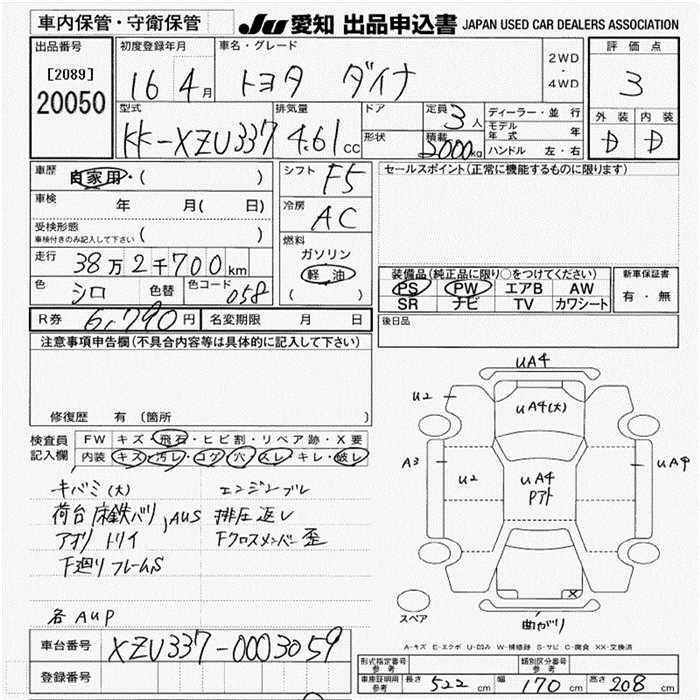 車内保管・守衛保管 JU 愛知 出品申込書 JAPAN USED CAR DEALERS ASSOCIATION
出品番号
[2089]
20050
初度登録年月
16 4月
車名・グレード
トヨタ ダイナ
2WD
・
4WD
評価点
3
外装 内装
D D
型式
KK-XZU337
排気量
4.61cc
ドア
形状
定員
3人
積載
2000kg
ディーラー・並行
モデル年式 年
ハンドル 左・右
車歴
自家用・( )
車検
年 月( 日)
受検形態
車検付きのみ記入して下さい ( )
走行
38万2千700km
色
シロ
色替
色コード
058
シフト
F5
冷房
AC
燃料
ガソリン
軽油
( )
セールスポイント(正常に機能するものに限ります)
装備品(純正品に限り○をつけてください)
PS PW エアB AW
SR ナビ TV カワシート
新車保証書
有・無
R券 6,790円 名変期限 月 日
後日品
注意事項申告欄(不具合内容等は具体的に記入して下さい)
修復歴 有(箇所 )
検査員
記入欄
FW キズ・飛石・ヒビ割・リペア跡・X要
内装 キズ・汚レ・コゲ・穴・スレ・キレ・破レ
キバミ(大) エンジンブレ
荷台 床鉄バリ,AUS 排圧返し
アオリ トリイ Fクロスメンバー歪
下廻りフレームS
各AUP
UA4
U2
UA4(大)
A3
U2
UA4
Pアト
UA9
X
スペア
曲がり
A-キズ E-エクボ U-凹み W-補修跡 S-サビ C-腐食 XX-交換済
車台番号 XZU337-0003059
登録番号
形式指定番号
参考
類別区分番号
参考
車庫証明用
参考
長さ 522cm 幅 170cm 高さ 208cm